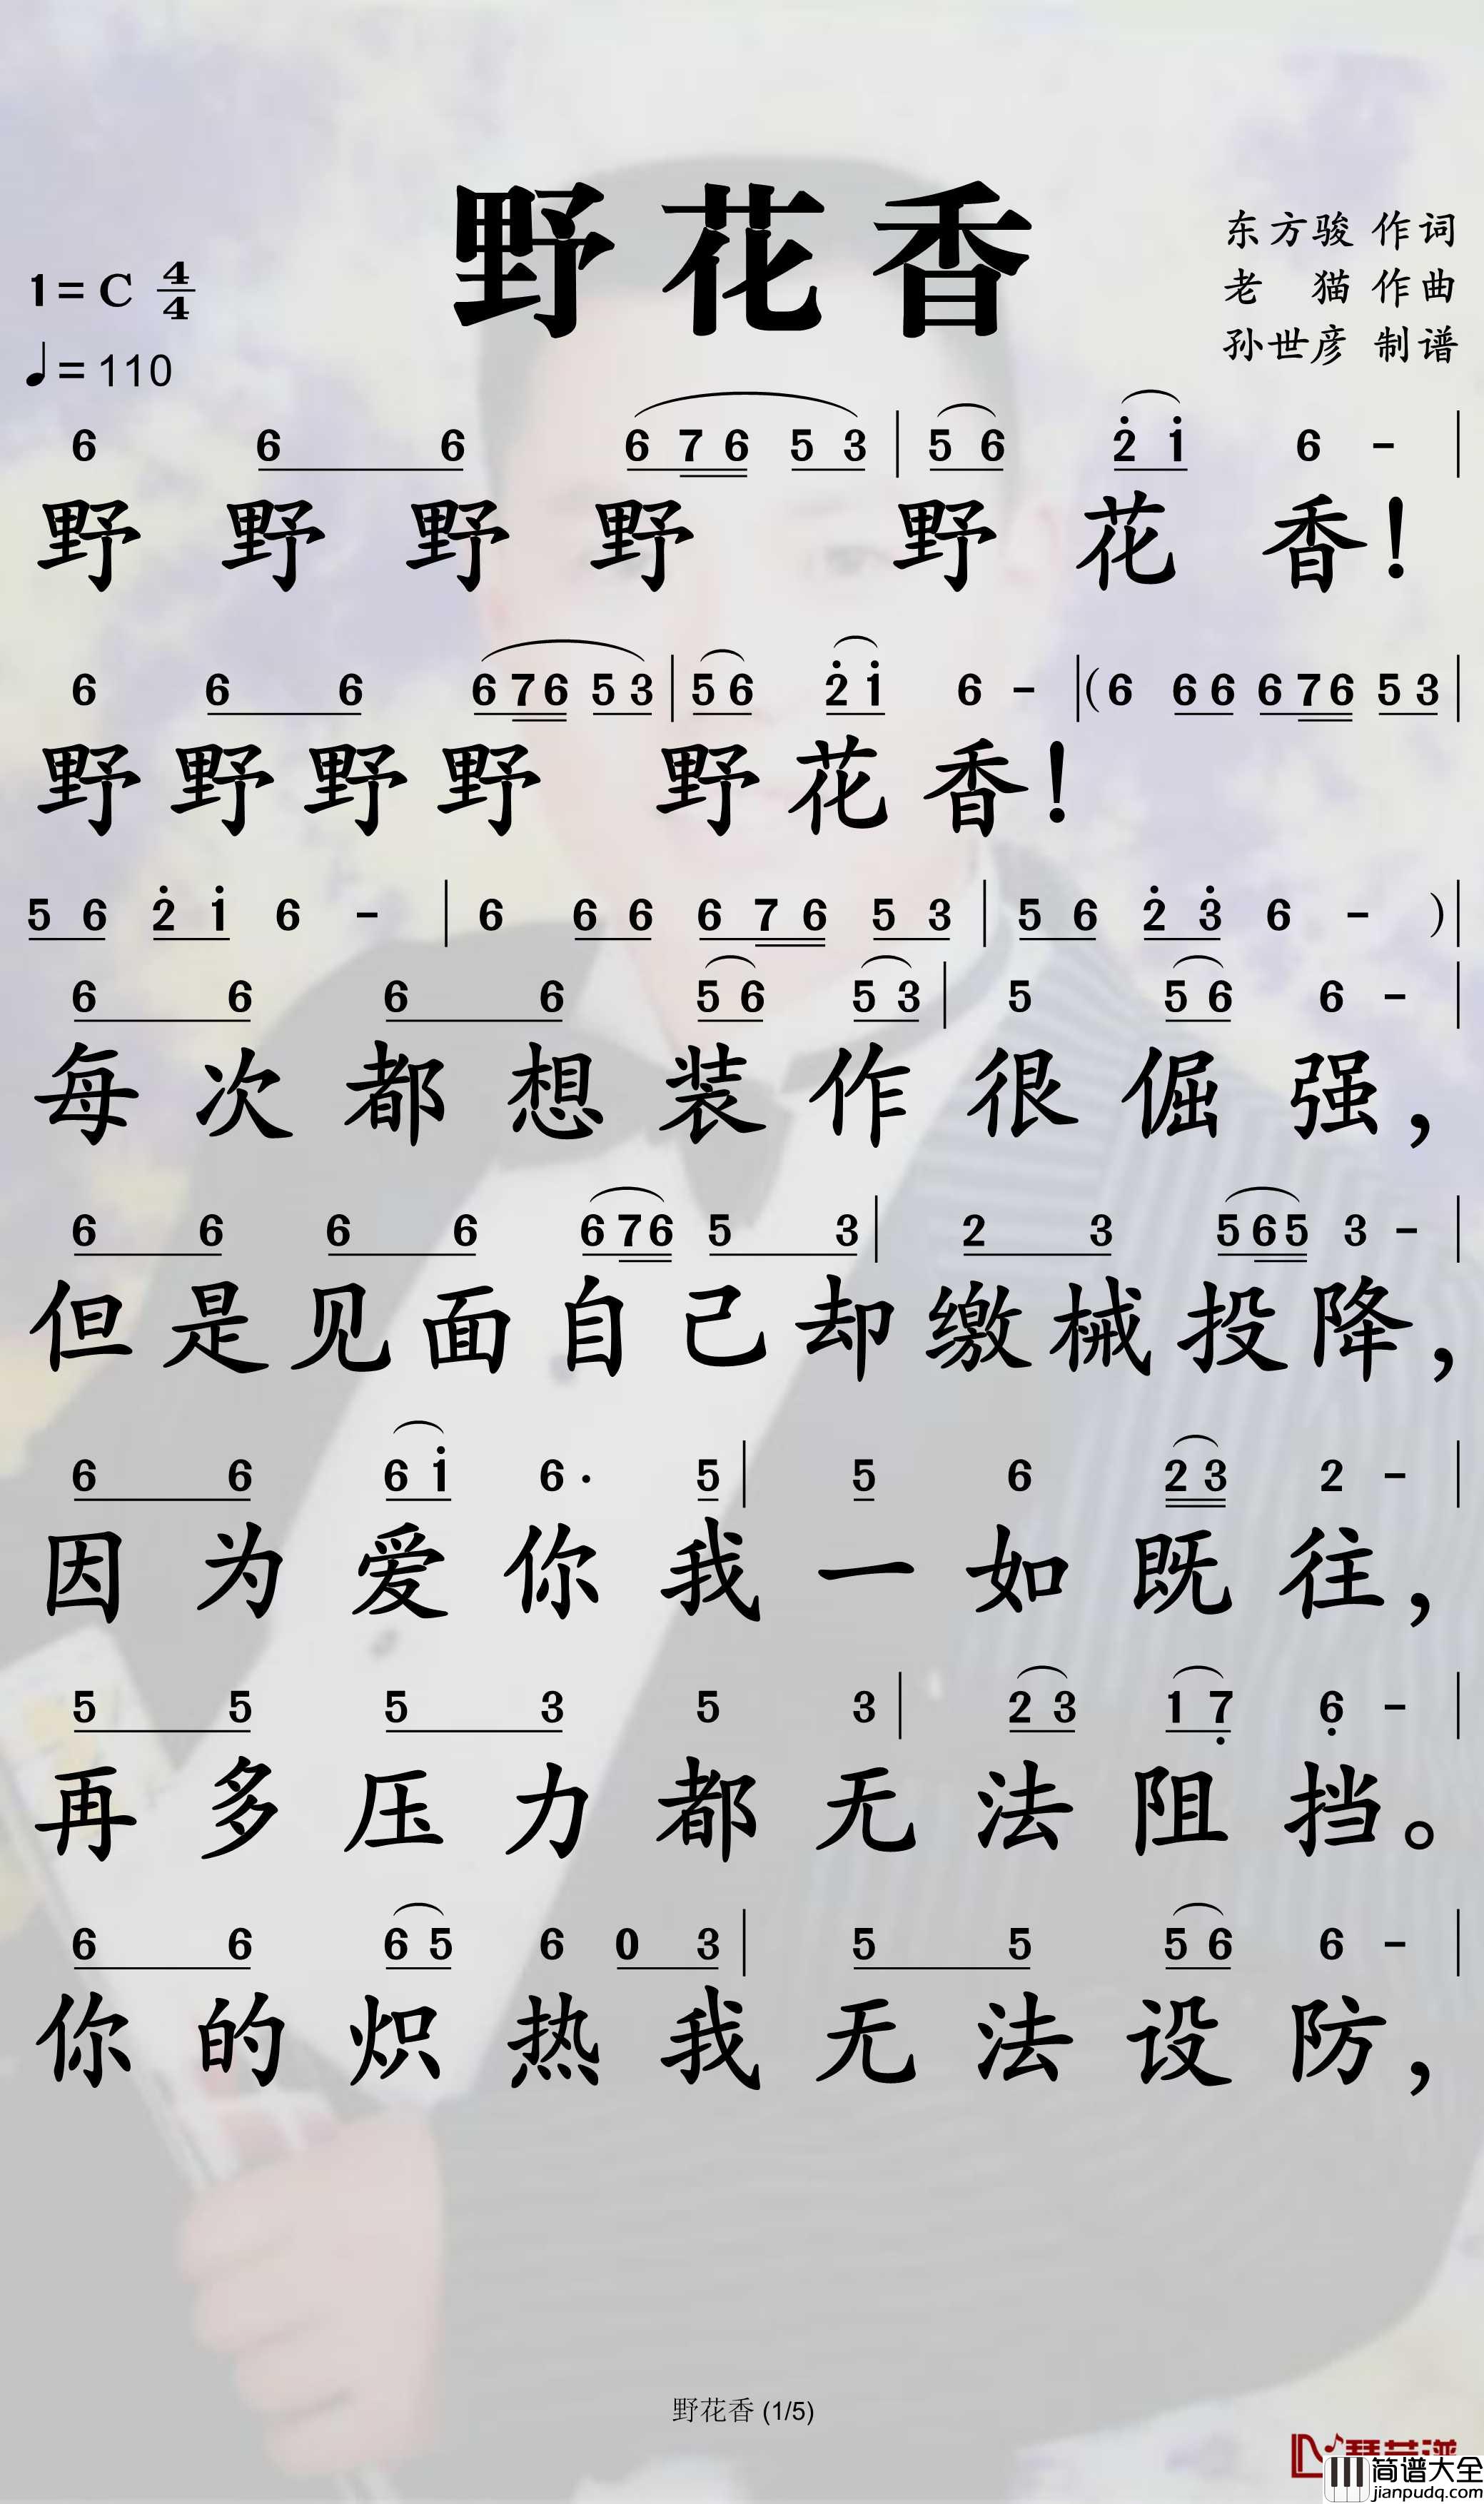 野花香
东方骏 作词
老 猫 作曲
孙世彦 制谱
1=C 4/4
♩=110
6 6 6 6 7 6 5 3 | 5 6 2̇ 1̇ 6 - |
野 野 野 野 野 花 香！
6 6 6 6 7 6 5 3 | 5 6 2̇ 1̇ 6 - | (6 6 6 6 7 6 5 3 |
野 野 野 野 野 花 香！
5 6 2̇ 1̇ 6 - | 6 6 6 6 7 6 5 3 | 5 6 2̇ 3̇ 6 - ) |
6 6 6 6 5 6 5 3 | 5 5 6 6 - |
每 次 都 想 装 作 很 倔 强，
6 6 6 6 6 7 6 5 3 | 2 3 5 6 5 3 - |
但 是 见 面 自 己 却 缴 械 投 降，
6 6 6 1̇ 6 · 5 | 5 6 2 3 2 - |
因 为 爱 你 我 一 如 既 往，
5 5 5 3 5 3 | 2 3 1 7̣ 6̣ - |
再 多 压 力 都 无 法 阻 挡。
6 6 6 5 6 0 3 | 5 5 5 6 6 - |
你 的 炽 热 我 无 法 设 防，
野花香 (1/5)
简谱大全
jianpudq.com